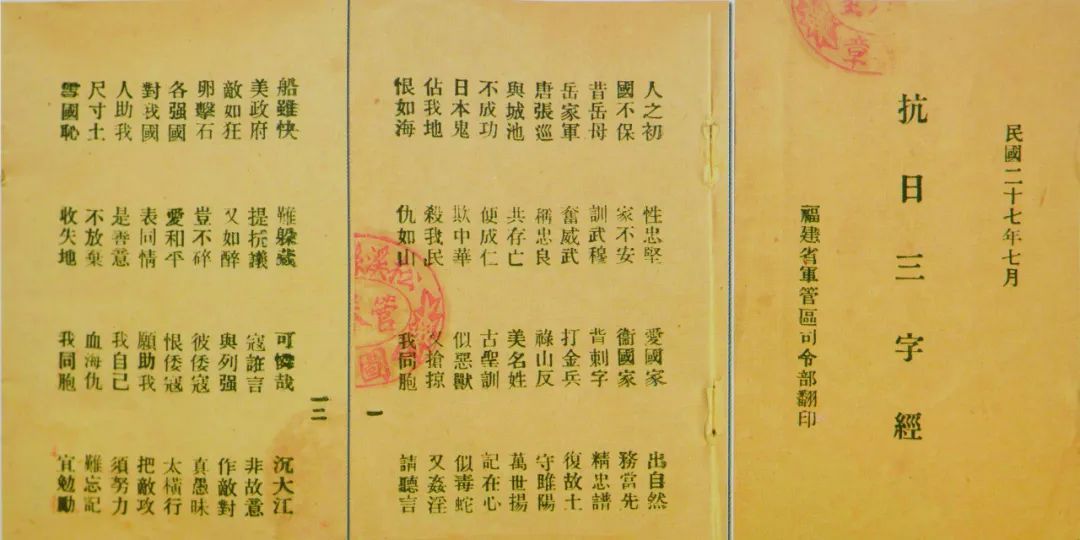 民國二十七年七月
抗日三字經
福建省軍管區司令部翻印
章
人之初 性忠堅 愛國家 出自然
國不保 家不安 衞國家 務當先
昔岳母 訓武穆 背刺字 精忠譜
岳家軍 奮威武 打金兵 復故土
唐張巡 稱忠良 祿山反 守睢陽
與城池 共存亡 美名姓 萬世揚
不成功 便成仁 古聖訓 記在心
日本鬼 欺中華 似惡獸 似毒蛇
佔我地 殺我民 又搶掠 又姦淫
恨如海 仇如山 我同胞 請聽言
一
船雖快 難躲藏 可憐哉 沉大江
美政府 提抗議 寇誑言 非故意
敵如狂 又如醉 與列强 作敵對
卵擊石 豈不碎 彼倭寇 真愚昧
各强國 愛和平 恨倭寇 太橫行
對我國 表同情 願助我 把敵攻
人助我 是善意 我自己 須努力
尺寸土 不放棄 血海仇 難忘記
雪國恥 收失地 我同胞 宜勉勵